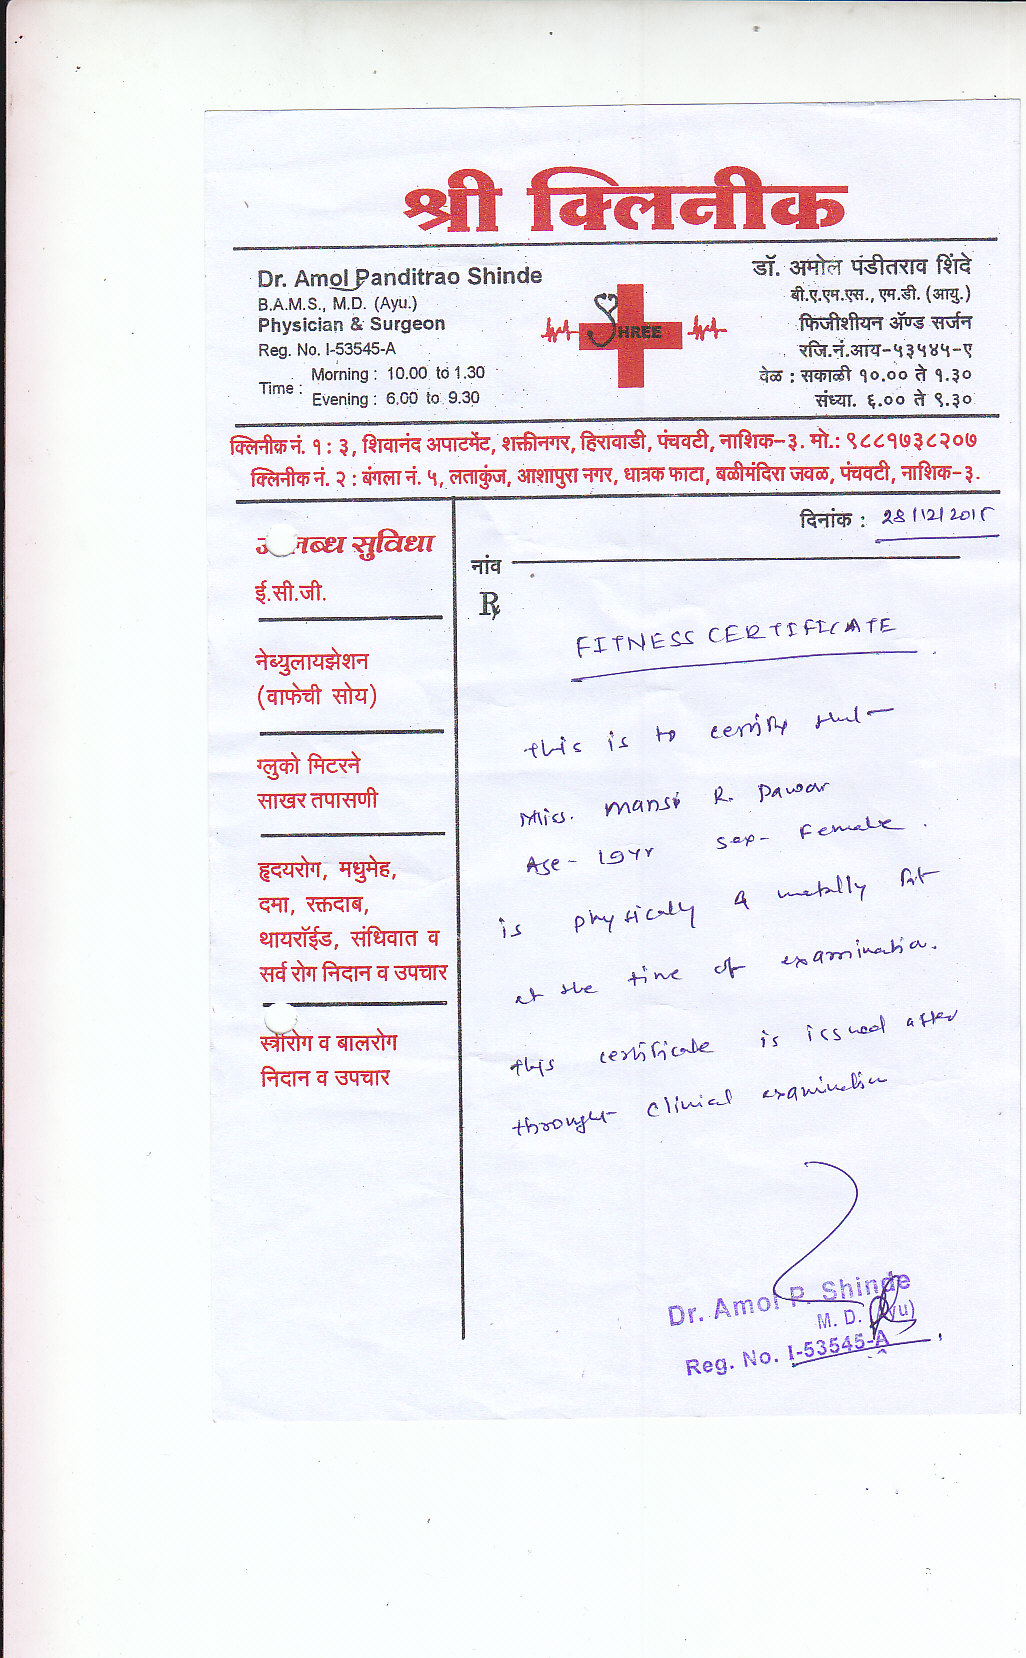 श्री क्लिनीक
Dr. Amol Panditrao Shinde
B.A.M.S., M.D. (Ayu.)
Physician & Surgeon
Reg. No. I-53545-A
Time : Morning : 10.00 to 1.30
Evening : 6.00 to 9.30
SHREE
डॉ. अमोल पंडीतराव शिंदे
बी.ए.एम.एस., एम.डी. (आयु.)
फिजीशीयन ॲण्ड सर्जन
रजि.नं.आय-५३५४५-ए
वेळ : सकाळी १०.०० ते १.३०
संध्या. ६.०० ते ९.३०
क्लिनीक नं. १ : ३, शिवानंद अपाटमेंट, शक्तीनगर, हिरावाडी, पंचवटी, नाशिक-३. मो.: ९८८१७३८२०७
क्लिनीक नं. २ : बंगला नं. ५, लताकुंज, आशापुरा नगर, धात्रक फाटा, बळीमंदिरा जवळ, पंचवटी, नाशिक-३.
दिनांक : 28/12/2015
सुविधा
ई.सी.जी.
नेब्युलायझेशन
(वाफेची सोय)
ग्लुको मिटरने
साखर तपासणी
हृदयरोग, मधुमेह,
दमा, रक्तदाब,
थायरॉईड, संधिवात व
सर्व रोग निदान व उपचार
स्त्रीरोग व बालरोग
निदान व उपचार
नांव
℞
FITNESS CERTIFICATE
this is to certify that
Miss. Mansi R. Pawar
Age - 19yr Sex - Female.
is physically & metally fit
at the time of examination.
this certificate is issued after
through clinical examination
Dr. Amol P. Shinde
M. D. (Ayu)
Reg. No. I-53545-A